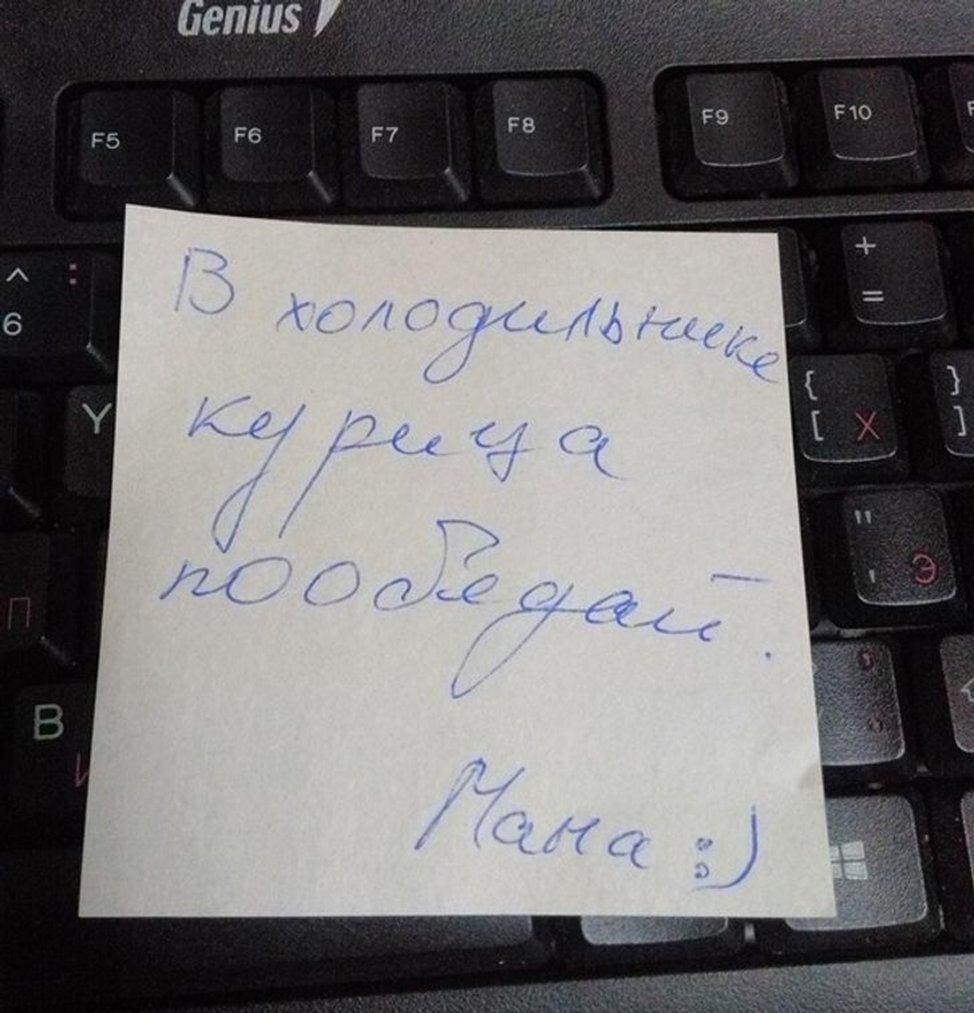 Genius
F5 F6 F7 F8 F9 F10
^ : 6
+ =
В холодильнике
Y
{ [ Х
} ]
курица
" ' Э
пообедай.
П
B И
Мама :)